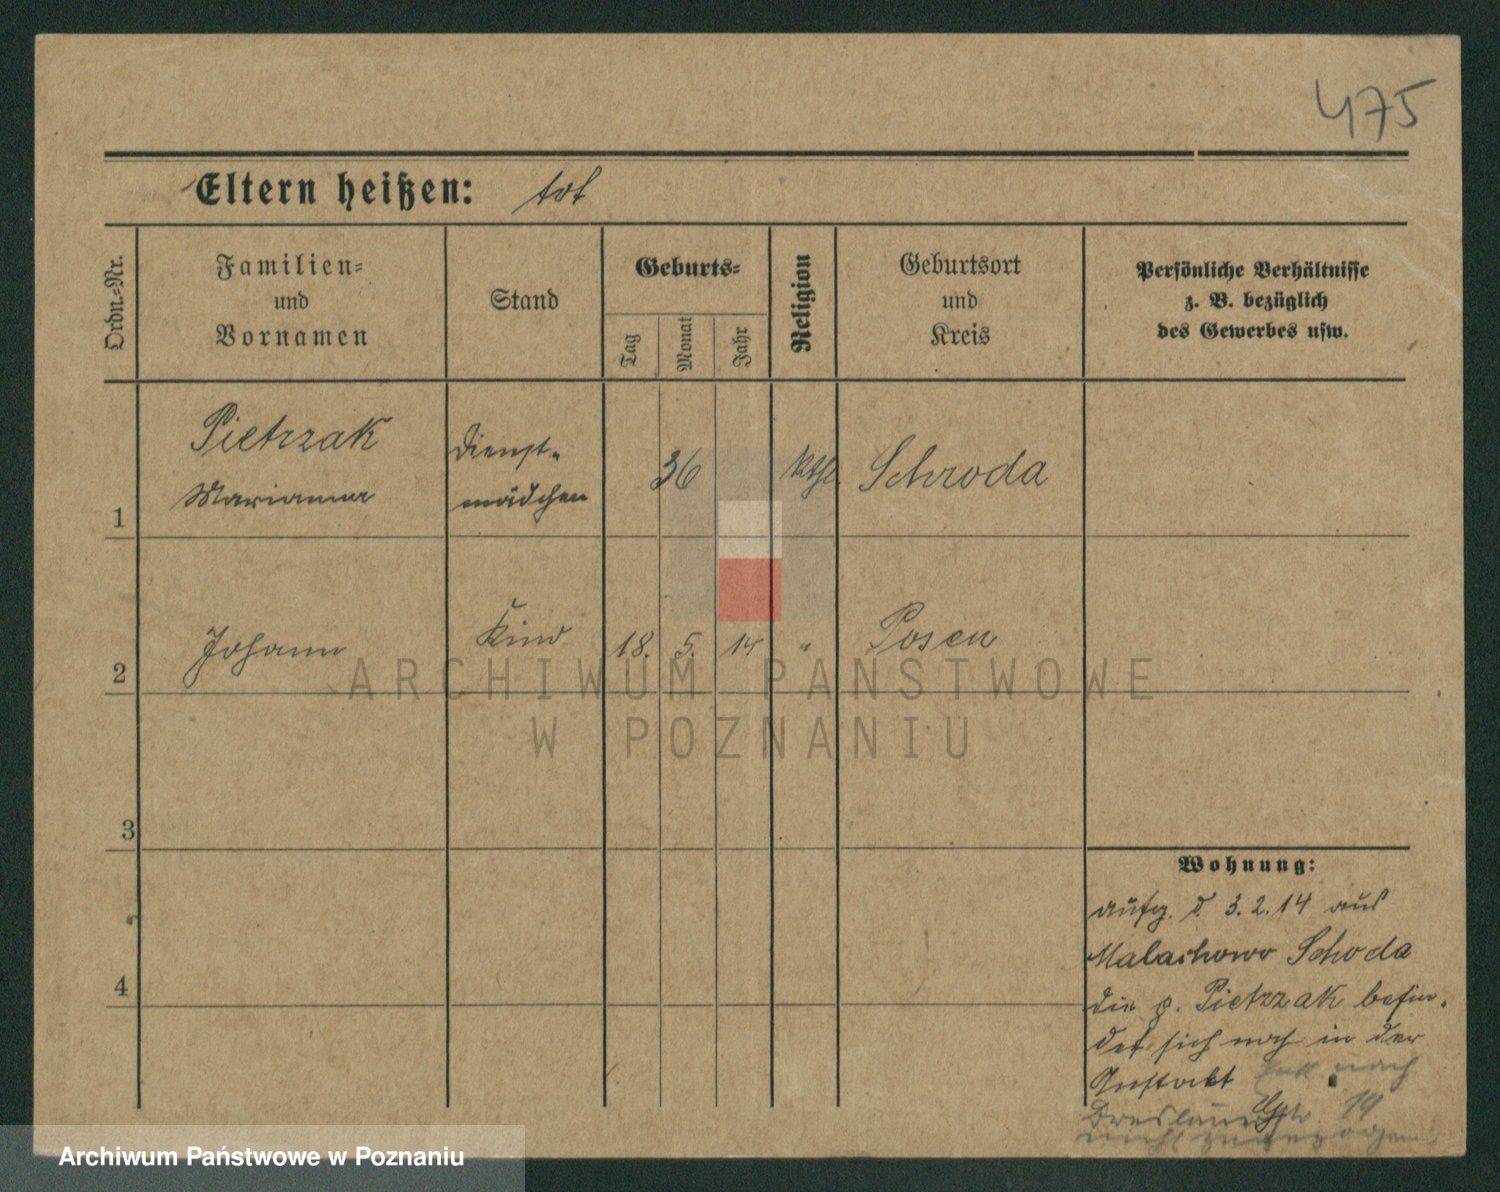 475
Eltern heißen: tot
Ordn.-Nr.
Familien-
und
Vornamen
Stand
Geburts-
Tag
Monat
Jahr
Religion
Geburtsort
und
Kreis
Persönliche Verhältnisse
z. B. bezüglich
des Gewerbes usw.
1
Pietrzak
Marianna
Dienst-
mädchen
36
kth.
Schroda
2
Johann
Kind
18. 5. 14
"
Posen
3
4
Wohnung:
aufg. d. 3.2.14 aus
Malachowo Schoda
die p. Pietrzak befin-
det sich noch in der
Anstalt soll nach
Breslauerstr. 19
nicht zugezogen
ARCHIWUM PAŃSTWOWE
W POZNANIU
Archiwum Państwowe w Poznaniu